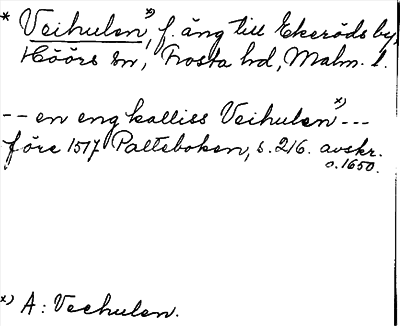 * Veihulen x), f. äng till Ekeröds by,
Höörs sn, Frosta hd, Malm. l.
-- en eng kalliss Veihulen x) ---
före 1517 Palteboken, s. 216. avskr.
o. 1650.
x) A: Vechulen.